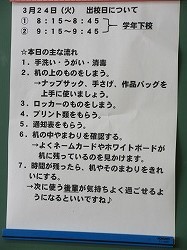 3月24日（火） 出校日について
① 8：15～8：45
② 9：15～9：45
学年下校
☆本日の主な流れ
1．手洗い・うがい・消毒
2．机の上のものをしまう。
→ナップサック、手さげ、作品バッグを
上手に使いましょう。
3．ロッカーのものをしまう。
4．プリント類をもらう。
5．通知表をもらう。
6．机の中やまわりを確認する。
→よくネームカードやホワイトボードが
机に残っているのを見かけます。
7．時間が残ったら、机やそのまわりをきれ
いにする。
→次に使う後輩が気持ちよく過ごせるよ
うになるといいですね♪